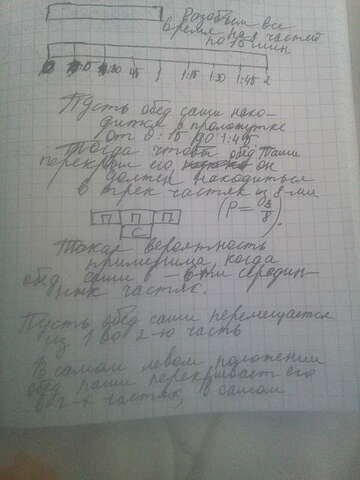 Разобьем все
время на 8 частей
по 15 мин
0 0:15 0:30 45 1 1:15 1:30 1:45 2
Пусть обед саши нахо-
дится в промежутке
от 0:15 до 1:45
Тогда чтобы обед Паши
перекрыл его он
должен находиться
в трёх частях из 8-ми
(P = 3/8).
П П П
С
Такая вероятность
примерима, когда
обед саши – в эти середин-
ных частях.
Пусть обед саши перемещается
из 1 во 2-ю часть
В самом левом положении
обед паши перекрывает его
в 2-х частях, в самом